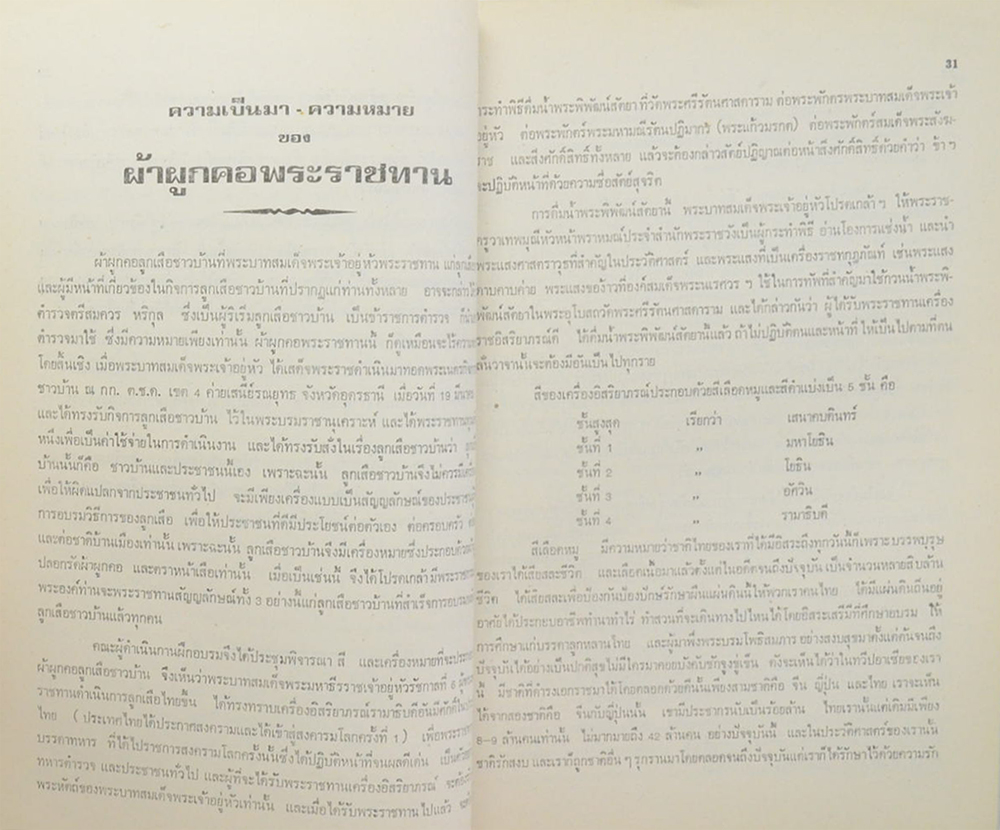 ความเป็นมา - ความหมาย
ของ
ผ้าผูกคอพระราชทาน
ผ้าผูกคอลูกเสือชาวบ้านที่พระบาทสมเด็จพระเจ้าอยู่หัวพระราชทาน แก่ลูกเสือ
และผู้มีหน้าที่เกี่ยวข้องในกิจการลูกเสือชาวบ้านที่ปรากฏแก่ท่านทั้งหลาย อาจจะกล่าวได้
ตำรวจตรีสมควร หริกุล ซึ่งเป็นผู้ริเริ่มลูกเสือชาวบ้าน เป็นข้าราชการตำรวจ
ตำรวจมาใช้ ซึ่งมีความหมายเพียงเท่านั้น ผ้าผูกคอพระราชทานนี้ ก็ดูเหมือนจะไร้ความ
โดยสิ้นเชิง เมื่อพระบาทสมเด็จพระเจ้าอยู่หัว ได้เสด็จพระราชดำเนินมาทอดพระเนตร
ชาวบ้าน ณ กก. ต.ช.ด. เขต 4 ค่ายเสนีย์รณยุทธ จังหวัดอุดรธานี เมื่อวันที่ 19 มีนาคม
และได้ทรงรับกิจการลูกเสือชาวบ้าน ไว้ในพระบรมราชานุเคราะห์ และได้พระราชทาน
หนึ่งเพื่อเป็นค่าใช้จ่ายในการดำเนินงาน และได้ทรงรับสั่งในเรื่องลูกเสือชาวบ้านว่า
บ้านนั้นก็คือ ชาวบ้านและประชาชนนี้เอง เพราะฉะนั้น ลูกเสือชาวบ้านจึงไม่ควรมี
เพื่อให้ผิดแปลกจากประชาชนทั่วไป จะมีเพียงเครื่องแบบเป็นสัญญลักษณ์ของประชาชน
การอบรมวิธีการของลูกเสือ เพื่อให้ประชาชนที่ดีมีประโยชน์ต่อตัวเอง ต่อครอบครัว
และต่อชาติบ้านเมืองเท่านั้น เพราะฉะนั้น ลูกเสือชาวบ้านจึงมีเครื่องหมายซึ่งประกอบด้วย
ปลอกรัดผ้าผูกคอ และตราหน้าเสือเท่านั้น เมื่อเป็นเช่นนี้ จึงได้โปรดเกล้ามีพระราช
พระองค์ท่านจะพระราชทานสัญญลักษณ์ทั้ง 3 อย่างนี้แก่ลูกเสือชาวบ้านที่สำเร็จการอบรม
ลูกเสือชาวบ้านแล้วทุกคน
คณะผู้ดำเนินการฝึกอบรมจึงได้ประชุมพิจารณา สี และเครื่องหมายที่จะประ
ผ้าผูกคอลูกเสือชาวบ้าน จึงเห็นว่าพระบาทสมเด็จพระมหาธีรราชเจ้าอยู่หัวรัชกาลที่ 6
ราชทานดำเนินการลูกเสือไทยขึ้น ได้ทรงทราบเครื่องอิสริยาภรณ์รามาธิบดีอันมีศักดิ์
ไทย (ประเทศไทยได้ประกาศสงครามและได้เข้าสู่สงครามโลกครั้งที่ 1) เพื่อพระราช
บรรดาทหาร ที่ได้ไปราชการสงครามโลกครั้งนั้นซึ่งได้ปฏิบัติหน้าที่จนผลดีเด่น เป็น
ทหารตำรวจ และประชาชนทั่วไป และผู้ที่จะได้รับพระราชทานเครื่องอิสริยาภรณ์ จะต้อง
พระหัตถ์ของพระบาทสมเด็จพระเจ้าอยู่หัวเท่านั้น และเมื่อได้รับพระราชทานไปแล้ว
31
กระทำพิธีดื่มน้ำพระพิพัฒน์สัตยา ที่วัดพระศรีรัตนศาสดาราม ต่อพระพักตร์พระบาทสมเด็จพระเจ้า
อยู่หัว ต่อพระพักตร์พระมหามณีรัตนปฏิมากร (พระแก้วมรกต) ต่อพระพักตร์สมเด็จพระสังฆ-
ราช และสิ่งศักดิ์สิทธิ์ทั้งหลาย แล้วจะต้องกล่าวสัตย์ปฏิญาณต่อหน้าสิ่งศักดิ์สิทธิ์ด้วยคำว่า ข้า ฯ
จะปฏิบัติหน้าที่ด้วยความซื่อสัตย์สุจริต
การดื่มน้ำพระพิพัฒน์สัตยานี้ พระบาทสมเด็จพระเจ้าอยู่หัวโปรดเกล้า ฯ ให้พระราช-
ครูวาเทพมุณีหัวหน้าพราหมณ์ประจำสำนักพระราชวังเป็นผู้กระทำพิธี อ่านโองการแช่งน้ำ และนำ
พระแสงศาสตราวุธที่สำคัญในประวัติศาสตร์ และพระแสงที่เป็นเครื่องราชกกุฏภัณฑ์ เช่นพระแสง
ดาบคาบค่าย พระแสงของ้าวที่องค์สมเด็จพระนเรศวร ฯ ใช้ในการทัพที่สำคัญมาใช้กวนน้ำพระพิ-
พัฒน์สัตยาในพระอุโบสถวัดพระศรีรัตนศาสดาราม และได้กล่าวกันว่า ผู้ได้รับพระราชทานเครื่อง
ราชอิสริยาภรณ์ดี ได้ดื่มน้ำพระพิพัฒน์สัตยานี้แล้ว ถ้าไม่ปฏิบัติตนและหน้าที่ ให้เป็นไปตามที่ตน
ลั่นวาจานั้นจะต้องมีอันเป็นไปทุกราย
สีของเครื่องอิสริยาภรณ์ประกอบด้วยสีเลือดหมูและสีดำแบ่งเป็น 5 ชั้น คือ
ชั้นสูงสุด เรียกว่า เสนางคบดินทร์
ชั้นที่ 1 ,, มหาโยธิน
ชั้นที่ 2 ,, โยธิน
ชั้นที่ 3 ,, อัศวิน
ชั้นที่ 4 ,, รามาธิบดี
สีเลือดหมู มีความหมายว่าชาติไทยของเราที่ได้มีอิสระถึงทุกวันนี้ก็เพราะบรรพบุรุษ
ของเราได้เสียสละชีวิต และเลือดเนื้อมาแล้วตั้งแต่ในอดีตจนถึงปัจจุบัน เป็นจำนวนหลายสิบล้าน
ชีวิต ได้เสียสละเพื่อป้องกันป้องปักษ์รักษาผืนแผ่นดินนี้ให้พวกเราคนไทย ได้มีแผ่นดินถิ่นอยู่
อาศัยได้ประกอบอาชีพทำนาทำไร่ ทำสวนที่จะเดินทางไปไหนได้โดยอิสระเสรีมีที่ศึกษาอบรม ให้
การศึกษาแก่บรรดาลูกหลานไทย และผู้มาพึ่งพระบรมโพธิสมภาร อย่างสงบสุขมาตั้งแต่ต้นจนถึง
ปัจจุบันได้อย่างเป็นปกติสุขไม่มีใครมาคอยบังคับชักจูงขู่เข็น ดังจะเห็นได้ว่าในทวีปอาเซียของเรา
นี้ มีชาติที่ดำรงเอกราชมาได้โดยตลอดด้วยดีนั้นเพียงสามชาติคือ จีน ญี่ปุ่น และไทย เราจะเห็น
ได้จากสองชาติคือ จีนกับญี่ปุ่นนั้น เขามีประชากรนับเป็นร้อยล้าน ไทยเรานั้นแต่เดิมมีเพียง
8-9 ล้านคนเท่านั้น ไม่มากมายถึง 42 ล้านคน อย่างปัจจุบันนี้ และในประวัติศาสตร์ของเรานั้น
ชาติรักสงบ และเราก็ถูกชาติอื่น ๆ รุกรานมาโดยตลอดจนถึงปัจจุบันแต่เราก็ได้รักษาไว้ด้วยความรัก